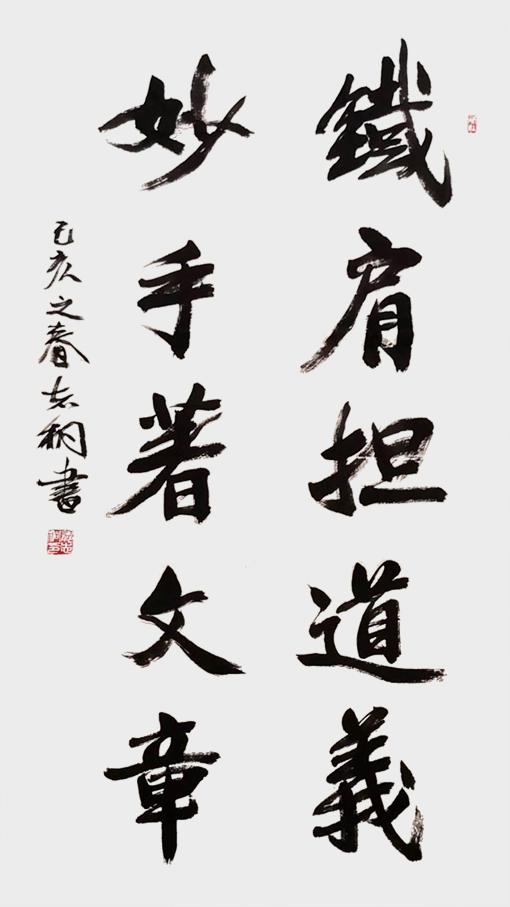 鐵肩担道義
妙手著文章
己亥之春志桐書